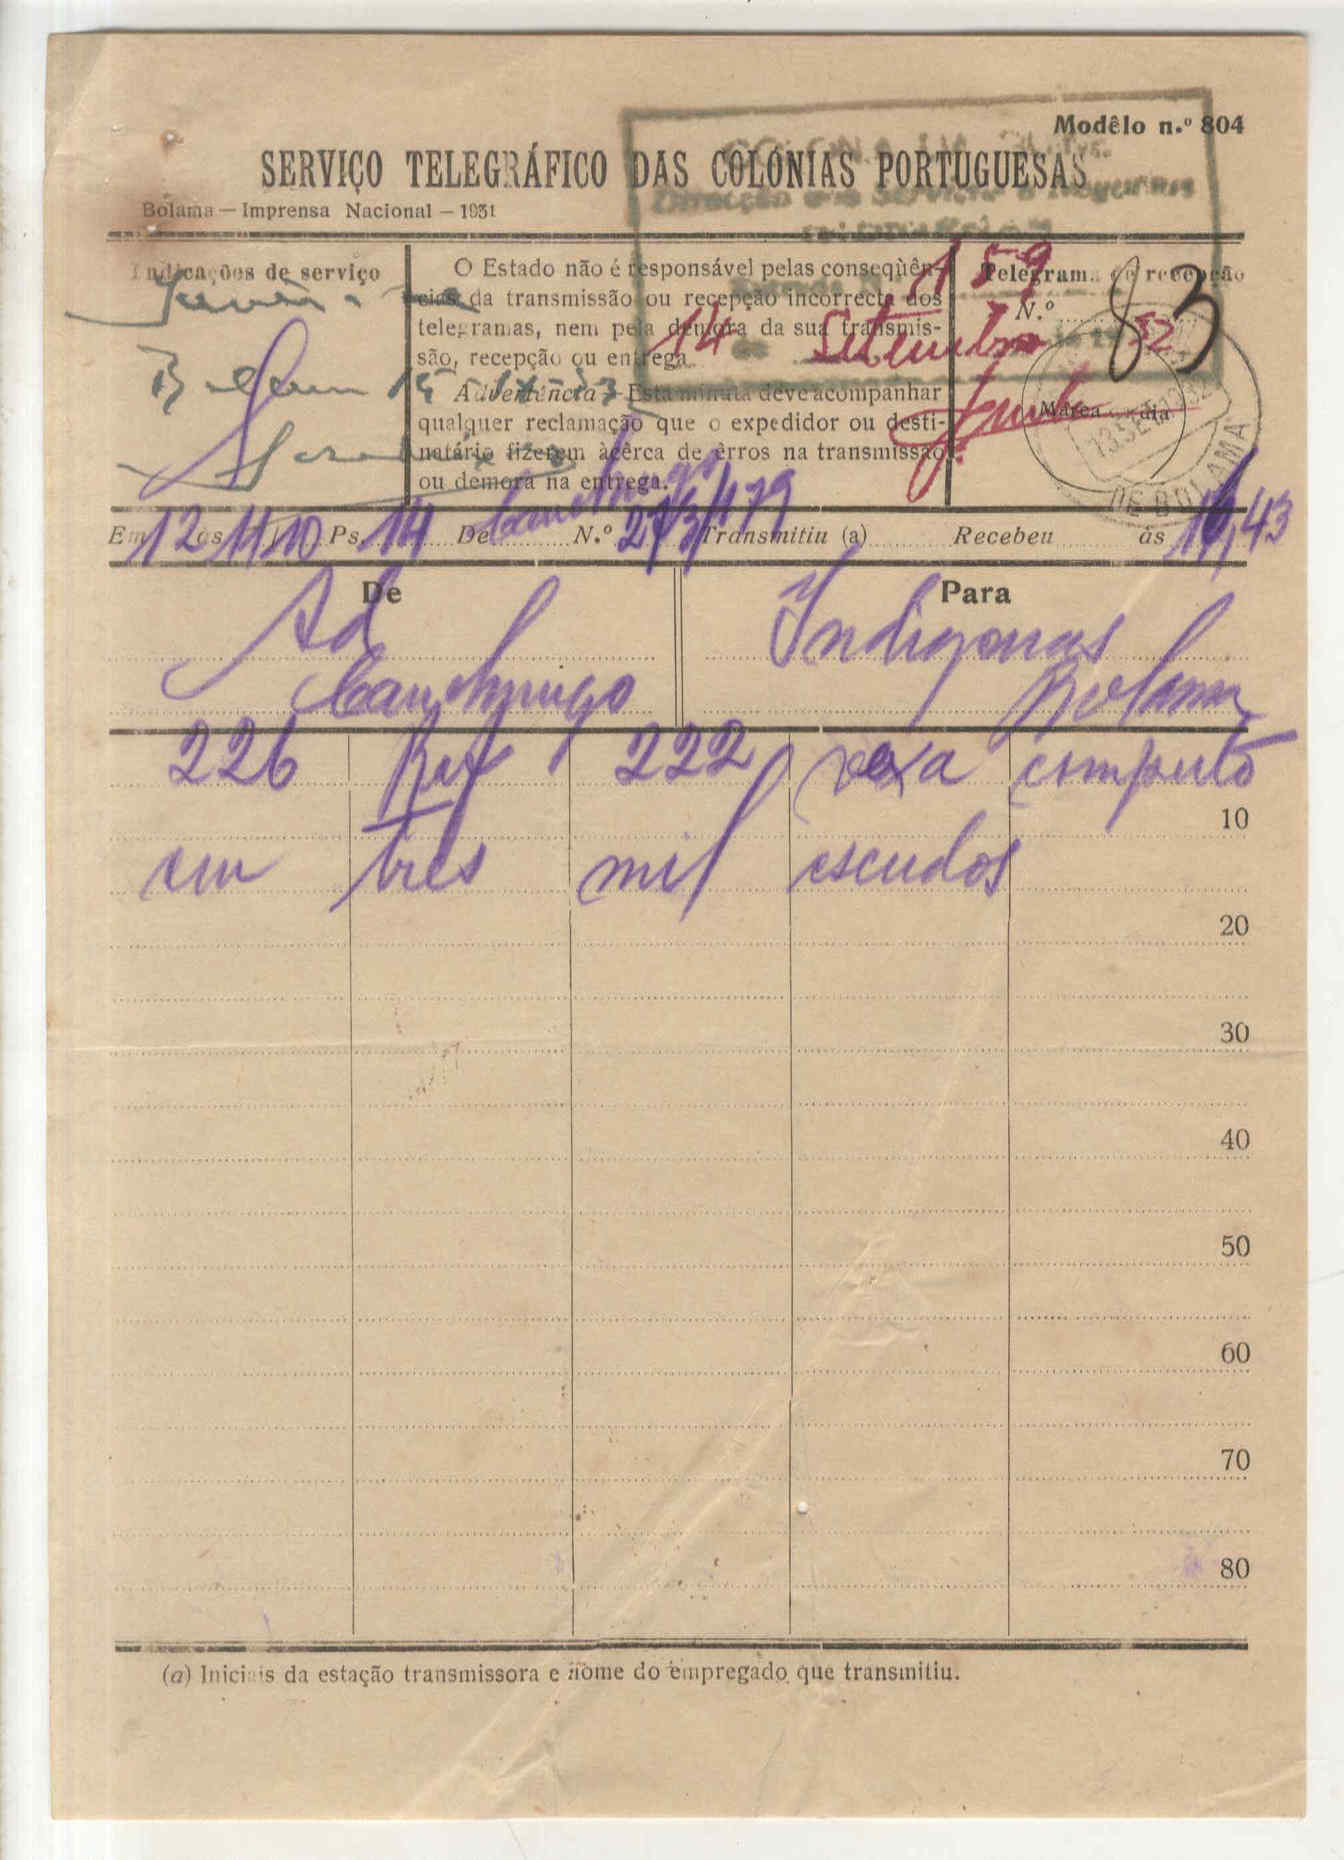 Modêlo n.º 804
SERVIÇO TELEGRÁFICO DAS COLÓNIAS PORTUGUESAS
Bolama — Imprensa Nacional — 1931
Indicações de serviço
O Estado não é responsável pelas conseqùên-
cias da transmissão ou recepção incorrecta dos
telegramas, nem pela demora da sua transmis-
são, recepção ou entrega.
Advertência — Esta minuta deve acompanhar
qualquer reclamação que o expedidor ou desti-
natário fizerem àcêrca de êrros na transmissão
ou demora na entrega.
Telegrama de recepção
N.º 83
159
14 Setembro 32
Marca dia
13.SET.1932
DE BOLAMA
Em 12 às 11,10 Ps. 14 De Canchungo N.º Transmitiu (a) Recebeu às 16,43
De Para
Ad Indigenas
Canchungo Bolama
226 Ref 222 vexa computo
10
em tres mil escudos
20
30
40
50
60
70
80
(a) Iniciais da estação transmissora e nome do empregado que transmitiu.